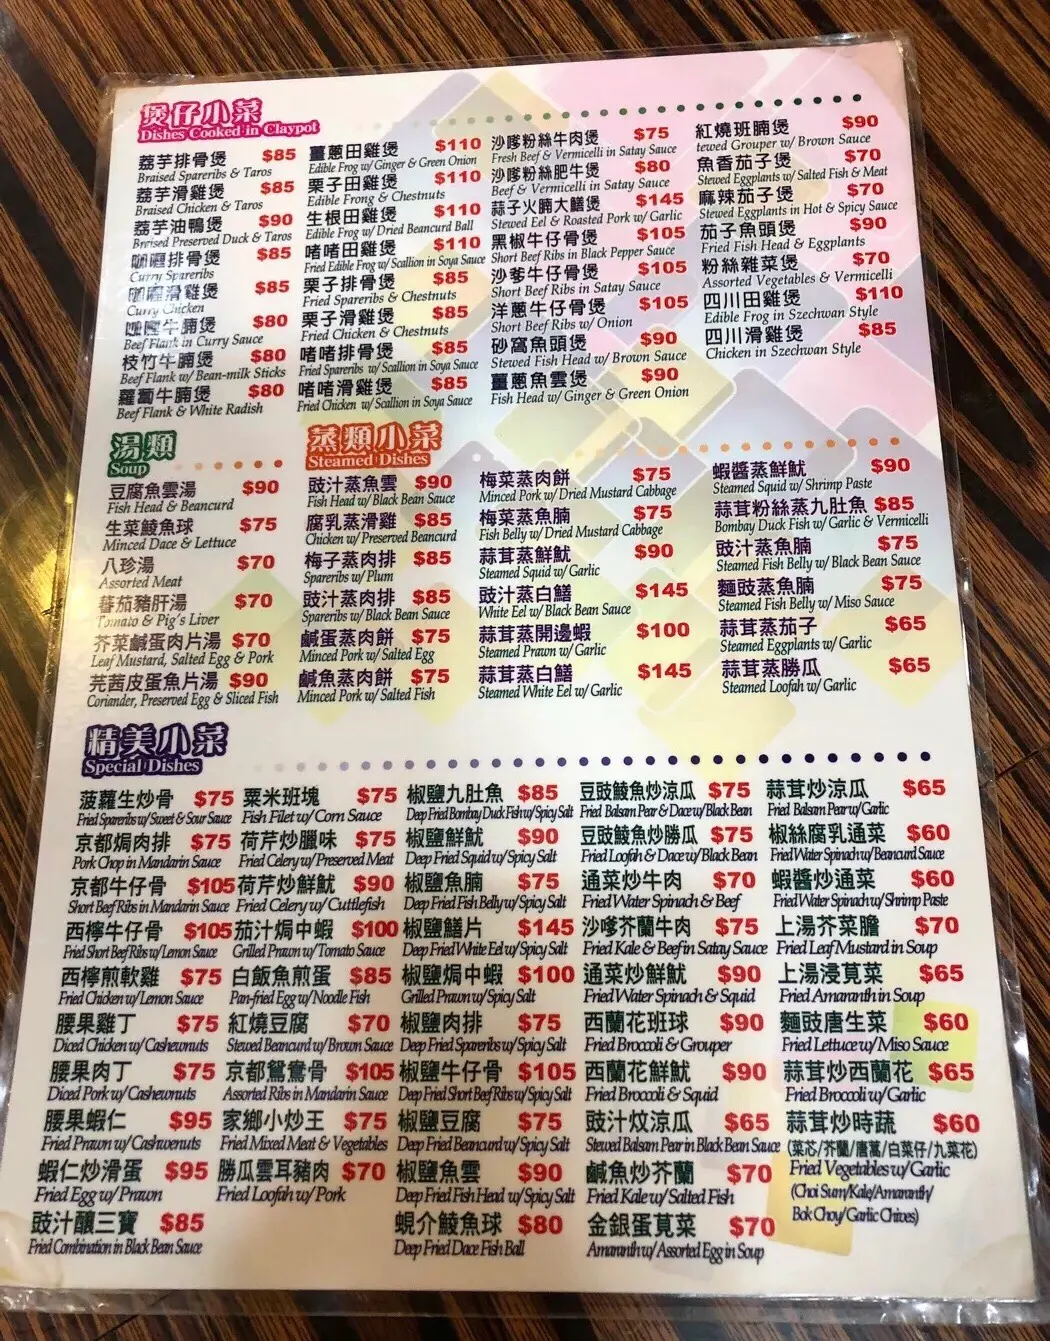 煲仔小菜
Dishes Cooked in Claypot
荔芋排骨煲 $85
Braised Spareribs & Taros
荔芋滑雞煲 $85
Braised Chicken & Taros
荔芋油鴨煲 $90
Braised Preserved Duck & Taros
咖喱排骨煲 $85
Curry Spareribs
咖喱滑雞煲 $85
Curry Chicken
咖喱牛腩煲 $80
Beef Flank in Curry Sauce
枝竹牛腩煲 $80
Beef Flank w/ Bean-milk Sticks
蘿蔔牛腩煲 $80
Beef Flank & White Radish
薑蔥田雞煲 $110
Edible Frog w/ Ginger & Green Onion
栗子田雞煲 $110
Edible Frong & Chestnuts
生根田雞煲 $110
Edible Frog w/ Dried Beancurd Ball
啫啫田雞煲 $110
Fried Edible Frog w/ Scallion in Soya Sauce
栗子排骨煲 $85
Fried Spareribs & Chestnuts
栗子滑雞煲 $85
Fried Chicken & Chestnuts
啫啫排骨煲 $85
Fried Spareribs w/ Scallion in Soya Sauce
啫啫滑雞煲 $85
Fried Chicken w/ Scallion in Soya Sauce
沙嗲粉絲牛肉煲 $75
Fresh Beef & Vermicelli in Satay Sauce
沙嗲粉絲肥牛煲 $80
Beef & Vermicelli in Satay Sauce
蒜子火腩大鱔煲 $145
Stewed Eel & Roasted Pork w/ Garlic
黑椒牛仔骨煲 $105
Short Beef Ribs in Black Pepper Sauce
沙爹牛仔骨煲 $105
Short Beef Ribs in Satay Sauce
洋蔥牛仔骨煲 $105
Short Beef Ribs w/ Onion
砂窩魚頭煲 $90
Stewed Fish Head w/ Brown Sauce
薑蔥魚雲煲 $90
Fish Head w/ Ginger & Green Onion
紅燒班腩煲 $90
tewed Grouper w/ Brown Sauce
魚香茄子煲 $70
Stewed Eggplants w/ Salted Fish & Meat
麻辣茄子煲 $70
Stewed Eggplants in Hot & Spicy Sauce
茄子魚頭煲 $90
Fried Fish Head & Eggplants
粉絲雜菜煲 $70
Assorted Vegetables & Vermicelli
四川田雞煲 $110
Edible Frog in Szechwan Style
四川滑雞煲 $85
Chicken in Szechwan Style
湯類
Soup
豆腐魚雲湯 $90
Fish Head & Beancurd
生菜鯪魚球 $75
Minced Dace & Lettuce
八珍湯 $70
Assorted Meat
蕃茄豬肝湯 $70
Tomato & Pig's Liver
芥菜鹹蛋肉片湯 $70
Leaf Mustard, Salted Egg & Pork
芫茜皮蛋魚片湯 $90
Coriander, Preserved Egg & Sliced Fish
蒸類小菜
Steamed Dishes
豉汁蒸魚雲 $90
Fish Head w/ Black Bean Sauce
腐乳蒸滑雞 $85
Chicken w/ Preserved Beancurd
梅子蒸肉排 $85
Spareribs w/ Plum
豉汁蒸肉排 $85
Spareribs w/ Black Bean Sauce
鹹蛋蒸肉餅 $75
Minced Pork w/ Salted Egg
鹹魚蒸肉餅 $75
Minced Pork w/ Salted Fish
梅菜蒸肉餅 $75
Minced Pork w/ Dried Mustard Cabbage
梅菜蒸魚腩 $75
Fish Belly w/ Dried Mustard Cabbage
蒜茸蒸鮮魷 $90
Steamed Squid w/ Garlic
豉汁蒸白鱔 $145
White Eel w/ Black Bean Sauce
蒜茸蒸開邊蝦 $100
Steamed Prawn w/ Garlic
蒜茸蒸白鱔 $145
Steamed White Eel w/ Garlic
蝦醬蒸鮮魷 $90
Steamed Squid w/ Shrimp Paste
蒜茸粉絲蒸九肚魚 $85
Bombay Duck Fish w/ Garlic & Vermicelli
豉汁蒸魚腩 $75
Steamed Fish Belly w/ Black Bean Sauce
麵豉蒸魚腩 $75
Steamed Fish Belly w/ Miso Sauce
蒜茸蒸茄子 $65
Steamed Eggplants w/ Garlic
蒜茸蒸勝瓜 $65
Steamed Loofah w/ Garlic
精美小菜
Special Dishes
菠蘿生炒骨 $75
Fried Spareribs w/ Sweet & Sour Sauce
京都焗肉排 $75
Pork Chop in Mandarin Sauce
京都牛仔骨 $105
Short Beef Ribs in Mandarin Sauce
西檸牛仔骨 $105
Fried Short Beef Ribs w/ Lemon Sauce
西檸煎軟雞 $75
Fried Chicken w/ Lemon Sauce
腰果雞丁 $75
Diced Chicken w/ Cashewnuts
腰果肉丁 $75
Diced Pork w/ Cashewnuts
腰果蝦仁 $95
Fried Prawn w/ Cashwenuts
蝦仁炒滑蛋 $95
Fried Egg w/ Prawn
豉汁釀三寶 $85
Fried Combination in Black Bean Sauce
粟米班塊 $75
Fish Filet w/ Corn Sauce
荷芹炒臘味 $75
Fried Celery w/ Preserved Meat
荷芹炒鮮魷 $90
Fried Celery w/ Cuttlefish
茄汁焗中蝦 $100
Grilled Prawn w/ Tomato Sauce
白飯魚煎蛋 $85
Pan-fried Egg w/ Noodle Fish
紅燒豆腐 $70
Stewed Beancurd w/ Brown Sauce
京都鴛鴦骨 $105
Assorted Ribs in Mandarin Sauce
家鄉小炒王 $75
Fried Mixed Meat & Vegetables
勝瓜雲耳豬肉 $70
Fried Loofah w/ Pork
椒鹽九肚魚 $85
Deep Fried Bombay Duck Fish w/ Spicy Salt
椒鹽鮮魷 $90
Deep Fried Squid w/ Spicy Salt
椒鹽魚腩 $75
Deep Fried Fish Belly w/ Spicy Salt
椒鹽鱔片 $145
Deep Fried White Eel w/ Spicy Salt
椒鹽焗中蝦 $100
Grilled Prawn w/ Spicy Salt
椒鹽肉排 $75
Deep Fried Spareribs w/ Spicy Salt
椒鹽牛仔骨 $105
Deep Fried Short Beef Ribs w/ Spicy Salt
椒鹽豆腐 $75
Deep Fried Beancurd w/ Spicy Salt
椒鹽魚雲 $90
Deep Fried Fish Head w/ Spicy Salt
蜆介鯪魚球 $80
Deep Fried Dace Fish Ball
豆豉鯪魚炒涼瓜 $75
Fried Balsam Pear & Dace w/ Black Bean
豆豉鯪魚炒勝瓜 $75
Fried Loofah & Dace w/ Black Bean
通菜炒牛肉 $70
Fried Water Spinach & Beef
沙嗲芥蘭牛肉 $75
Fried Kale & Beef in Satay Sauce
通菜炒鮮魷 $90
Fried Water Spinach & Squid
西蘭花班球 $90
Fried Broccoli & Grouper
西蘭花鮮魷 $90
Fried Broccoli & Squid
豉汁炆涼瓜 $65
Stewed Balsam Pear in Black Bean Sauce
鹹魚炒芥蘭 $70
Fried Kale w/ Salted Fish
金銀蛋莧菜 $70
Amaranth w/ Assorted Egg in Soup
蒜茸炒涼瓜 $65
Fried Balsam Pear w/ Garlic
椒絲腐乳通菜 $60
Fried Water Spinach w/ Beancurd Sauce
蝦醬炒通菜 $60
Fried Water Spinach w/ Shrimp Paste
上湯芥菜膽 $70
Fried Leaf Mustard in Soup
上湯浸莧菜 $65
Fried Amaranth in Soup
麵豉唐生菜 $60
Fried Lettuce w/ Miso Sauce
蒜茸炒西蘭花 $65
Fried Broccoli w/ Garlic
蒜茸炒時蔬 $60
(菜芯/芥蘭/唐蒿/白菜仔/九菜花)
Fried Vegetables w/ Garlic
(Choi Sum/Kale/Amaranth/
Bok Choy/Garlic Chives)